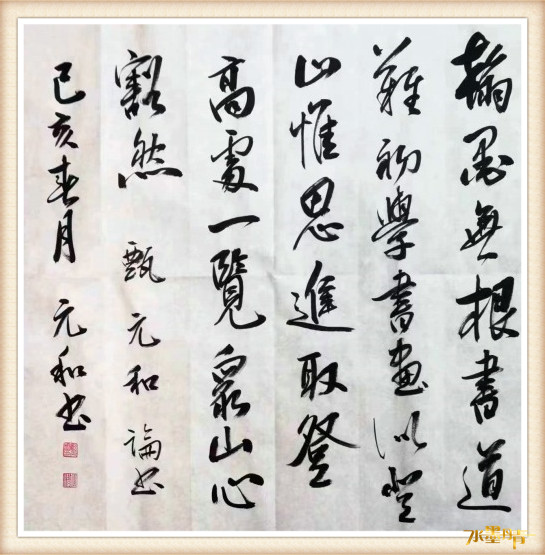 翰墨無根書道
難初學書畫似登
山惟思進取登
高處一覽眾山心
豁然 甄元和論书
己亥春月 元和书
水墨丹青